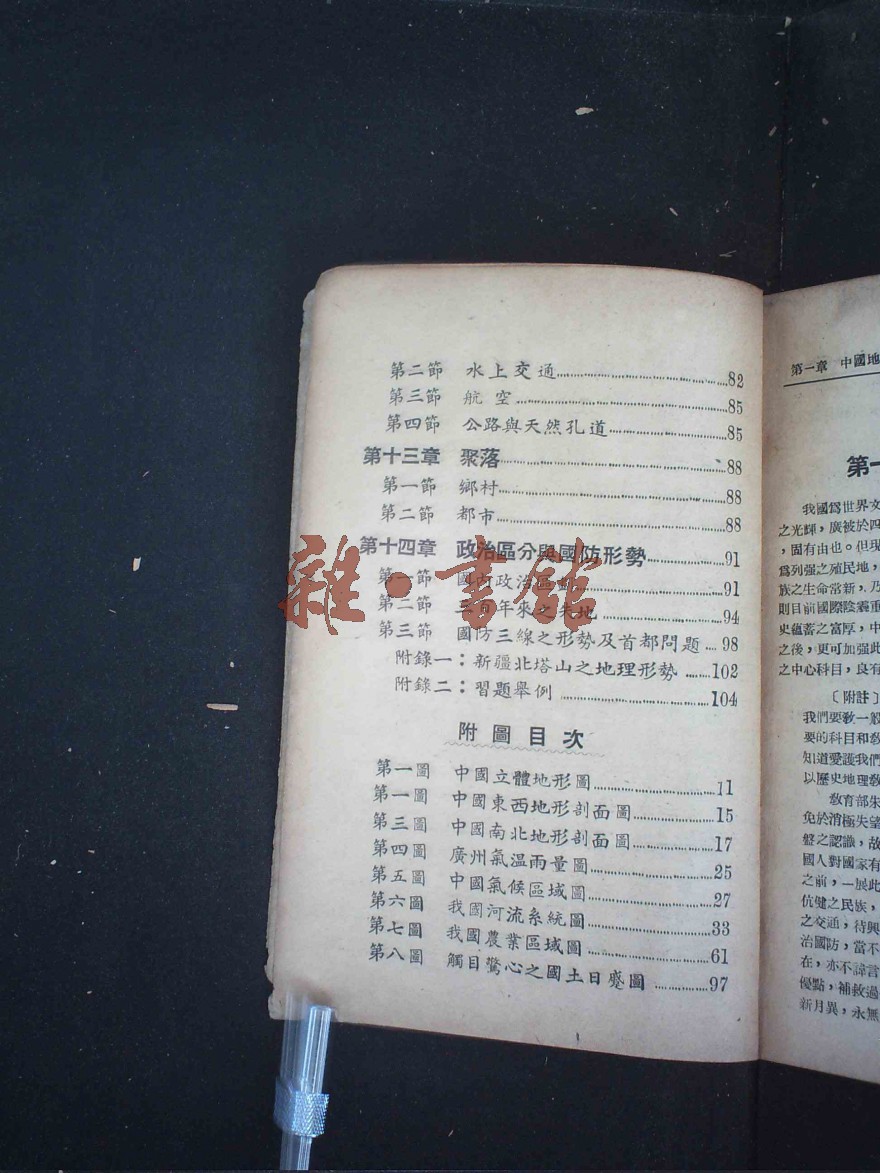 第二節 水上交通……82
第三節 航空……85
第四節 公路與天然孔道……85
第十三章 聚落……88
第一節 鄉村……88
第二節 都市……88
第十四章 政治區分與國防形勢……91
第一節 國內政治區劃……91
第二節 三百年來之失地……94
第三節 國防三線之形勢及首都問題……98
附錄一：新疆北塔山之地理形勢……102
附錄二：習題舉例……104
附圖目次
第一圖 中國立體地形圖……11
第一圖 中國東西地形剖面圖……15
第三圖 中國南北地形剖面圖……17
第四圖 廣州氣溫雨量圖……25
第五圖 中國氣候區域圖……27
第六圖 我國河流系統圖……33
第七圖 我國農業區域圖……61
第八圖 觸目驚心之國土日蹙圖……97
雜·書館
第一章 中國地
第一
我國爲世界文
之光輝，廣被於四
，固有由也。但現
爲列强之殖民地，
族之生命常新，乃
則目前國際陰霾重
史蘊蓄之富厚，中
之後，更可加强此
之中心科目，良有
〔附註〕
我們要敎一般
要的科目和敎
知道愛護我們
以歷史地理敎
敎育部朱
免於消極失望
盤之認識，故
國人對國家有
之前，一展此
伉健之民族，
之交通，待興
治國防，當不
在，亦不諱言
優點，補救過
新月異，永無